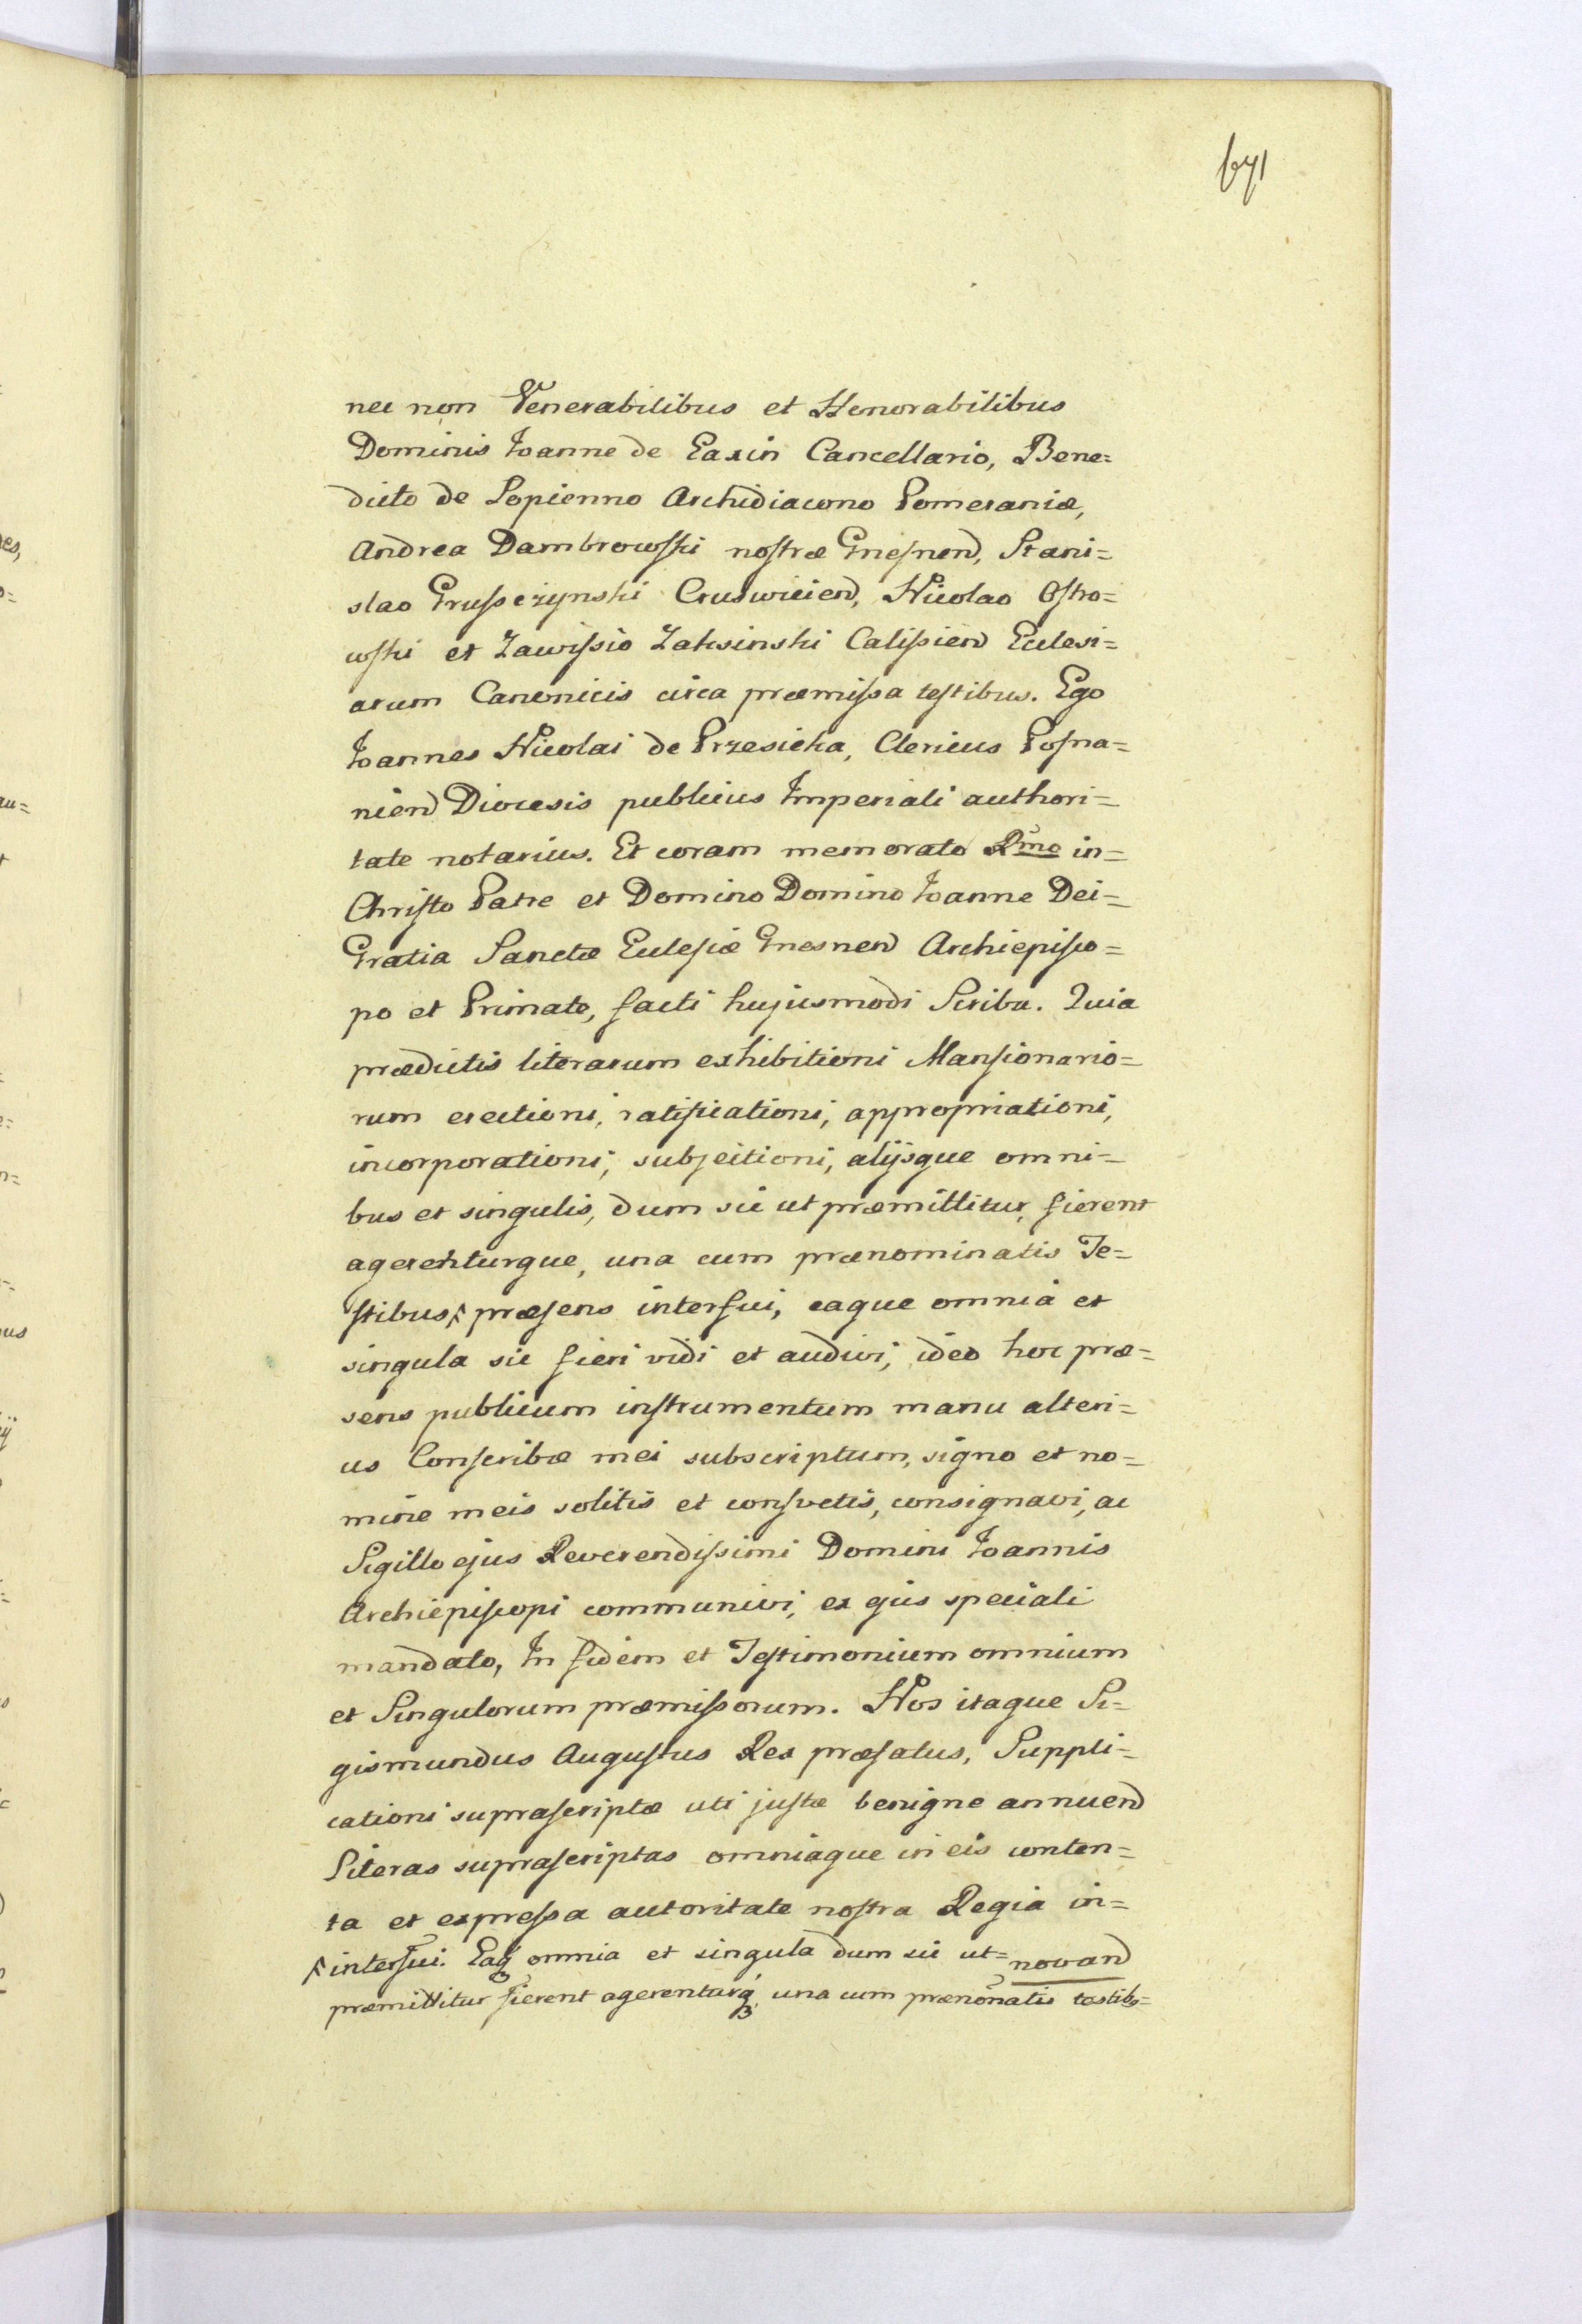 671
nec non Venerabilibus et Honorabilibus
Dominis Joanne de Exin Cancellario, Bene=
dicto de Lopienno Archidiacono Pomeraniæ,
Andrea Dambrowski nostræ Gnesnen, Stani=
slao Grusczynski Cruswicien, Nicolao Ostro=
wski et Zawissio Zaksinski Calissien Ecclesi=
arum Canonicis circa præmissa testibus. Ego
Joannes Nicolai de Przesieka, Clericus Posna=
nien Diocesis publicus Imperiali authori=
tate notarius. Et coram memorato Rmo in=
Christo Patre et Domino Domino Joanne Dei=
Gratia Sanctæ Ecclesiæ Gnesnen Archiepisco=
po et Primate, facti hujusmodi Scriba. Quia
prædictis literarum exhibitioni Mansionario=
rum erectioni, ratificationi, appropriationi,
incorporationi, subjectioni, alijsque omni=
bus et singulis, dum sic ut præmittitur, fierent
agerenturque, una cum prænominatis Te=
stibus, præsens interfui, eaque omnia et
singula sic fieri vidi et audivi, ideo hoc præ=
sens publicum instrumentum manu alteri=
us Conscribæ mei subscriptum, signo et no=
mine meis solitis et consvetis, consignavi, ac
Sigillo ejus Reverendissimi Domini Joannis
Archiepiscopi communivi, ex ejus speciali
mandato, In fidem et Testimonium omnium
et Singulorum præmissorum. Nos itaque Si=
gismundus Augustus Rex præfatus, Suppli=
cationi suprascriptæ uti justæ benigne annuen
Literas suprascriptas omniaque in eis conten=
ta et expressa autoritate nostra Regia in=
novand
interfui. Eaq omnia et singula dum sic ut=
præmittitur fierent agerenturq una cum prænonatis testibs=